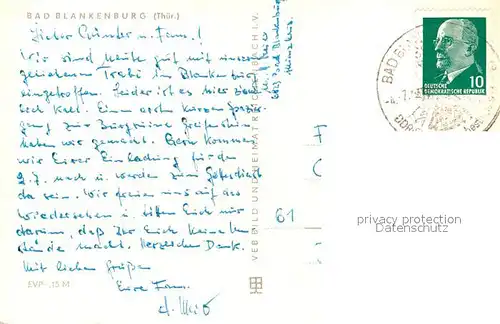 BAD BLANKENBURG (Thür.)
Lieber Günter u. Fam.!
Wir sind heute gut mit unserem
geliehenen Trabi im Blankenburg
eingetroffen. Leider ist es hier ziem-
lich kalt. Einen ersten kurzen Spazier-
gang zur Burgruine Greifenstein
haben wir gemacht. Gern kommen
wir Eurer Einladung für den
9.7. nach u. werden zum Gottesdienst
da sein. Wir freuen uns auf das
Wiedersehen u. bitten Euch nur
darum, daß Ihr Euch keine Um-
stände macht. Herzlichen Dank.
Mit lieben Grüßen
Eure Fam.
EVP -,15 M
VEB BILD UND HEIMAT REICHENBACH I. V.
Bad Blankenburg
BAD BLAN
DEUTSCHE
DEMOKRATISCHE REPUBLIK
10
F
61
privacy protection
Remember.de